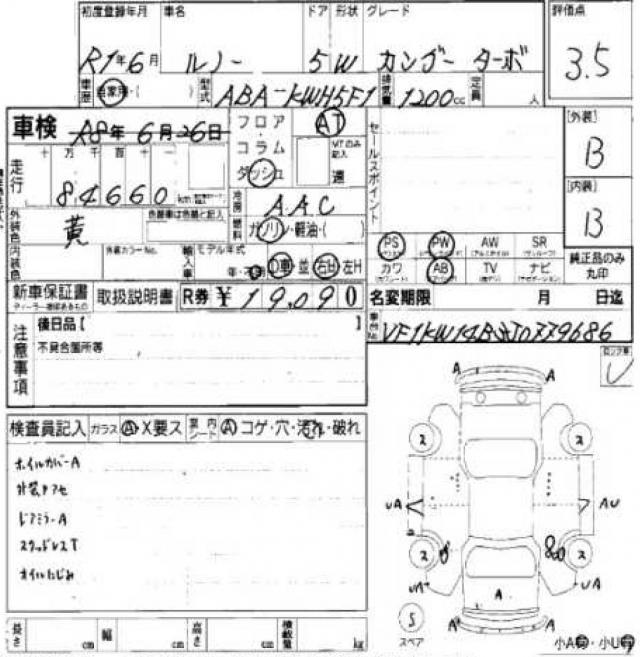 初度登録年月 車名 ドア 形状 グレード 評価点
R1年6月 ルノー 5W カングー ターボ 3.5
車歴 自家用・( ) 型式 ABA-KWH5F1 排気量 1200cc 定員 人
車検 R8年6月26日 フロア AT セールスポイント [外装]
走行 十万千百十一 コラム MTのみ記入 B
84660 km ダッシュ 速 [内装]
冷房 AAC B
外装色 黄 色替車は色替と記入 燃料 ガソリン・軽油・( )
PS PW AW SR 純正品のみ丸印
内装色 カラーNo. 輸入車 モデル年式 カワ AB TV ナビ
年・ D車 並 右H 左H
新車保証書 取扱説明書 R券 ¥19,090 名変期限 月 日迄
ディーラー捺印あるもの
注意事項 後日品【 】 車台No. VF1KW14BSJ0779686
不具合箇所等
検査員記入 ガラス A X要ス 内シート A コゲ・穴・汚れ・破れ
ホイルカバーA
外装クアセ
ドアミラーA
スタッドレスT
オイルにじみ
A A
ス ス
UA AU
ス ス
UA A UA
S
A A
スペア 小A・小U
長さ cm 幅 cm 高さ cm 積載量 kg